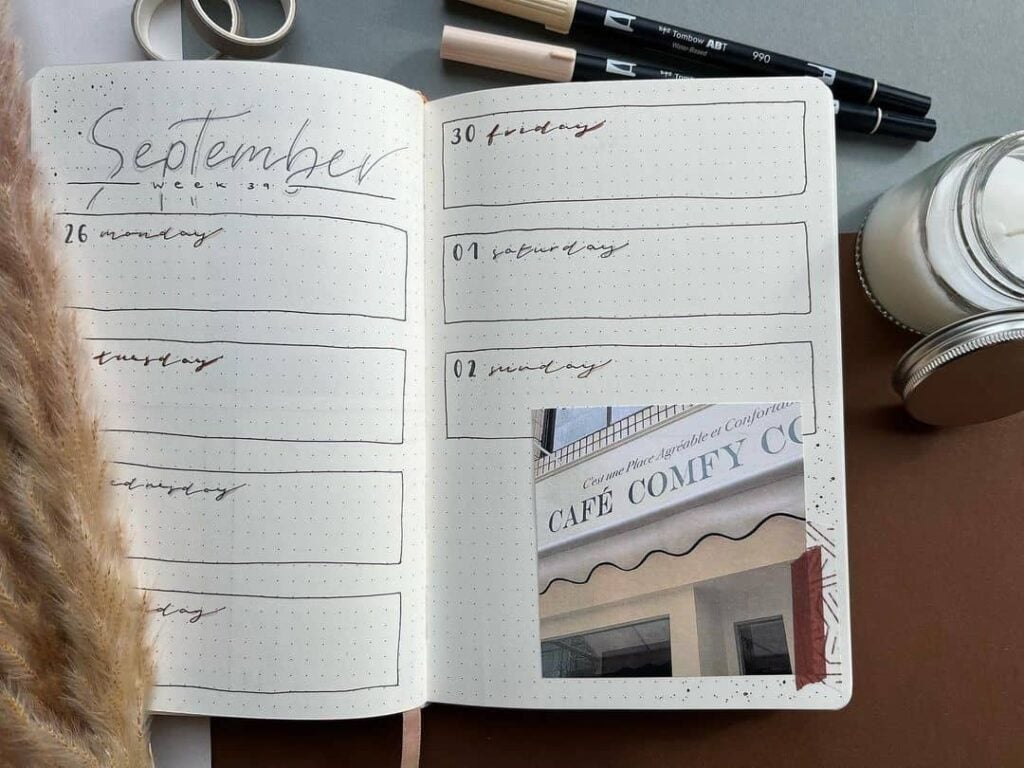 September
week 39
26 monday
tuesday
dnesday
day
30 friday
01 saturday
02 sunday
C'est une Place Agréable et Conforta
CAFÉ COMFY CO
Tombow ABT
Water-Based
990
Tombow